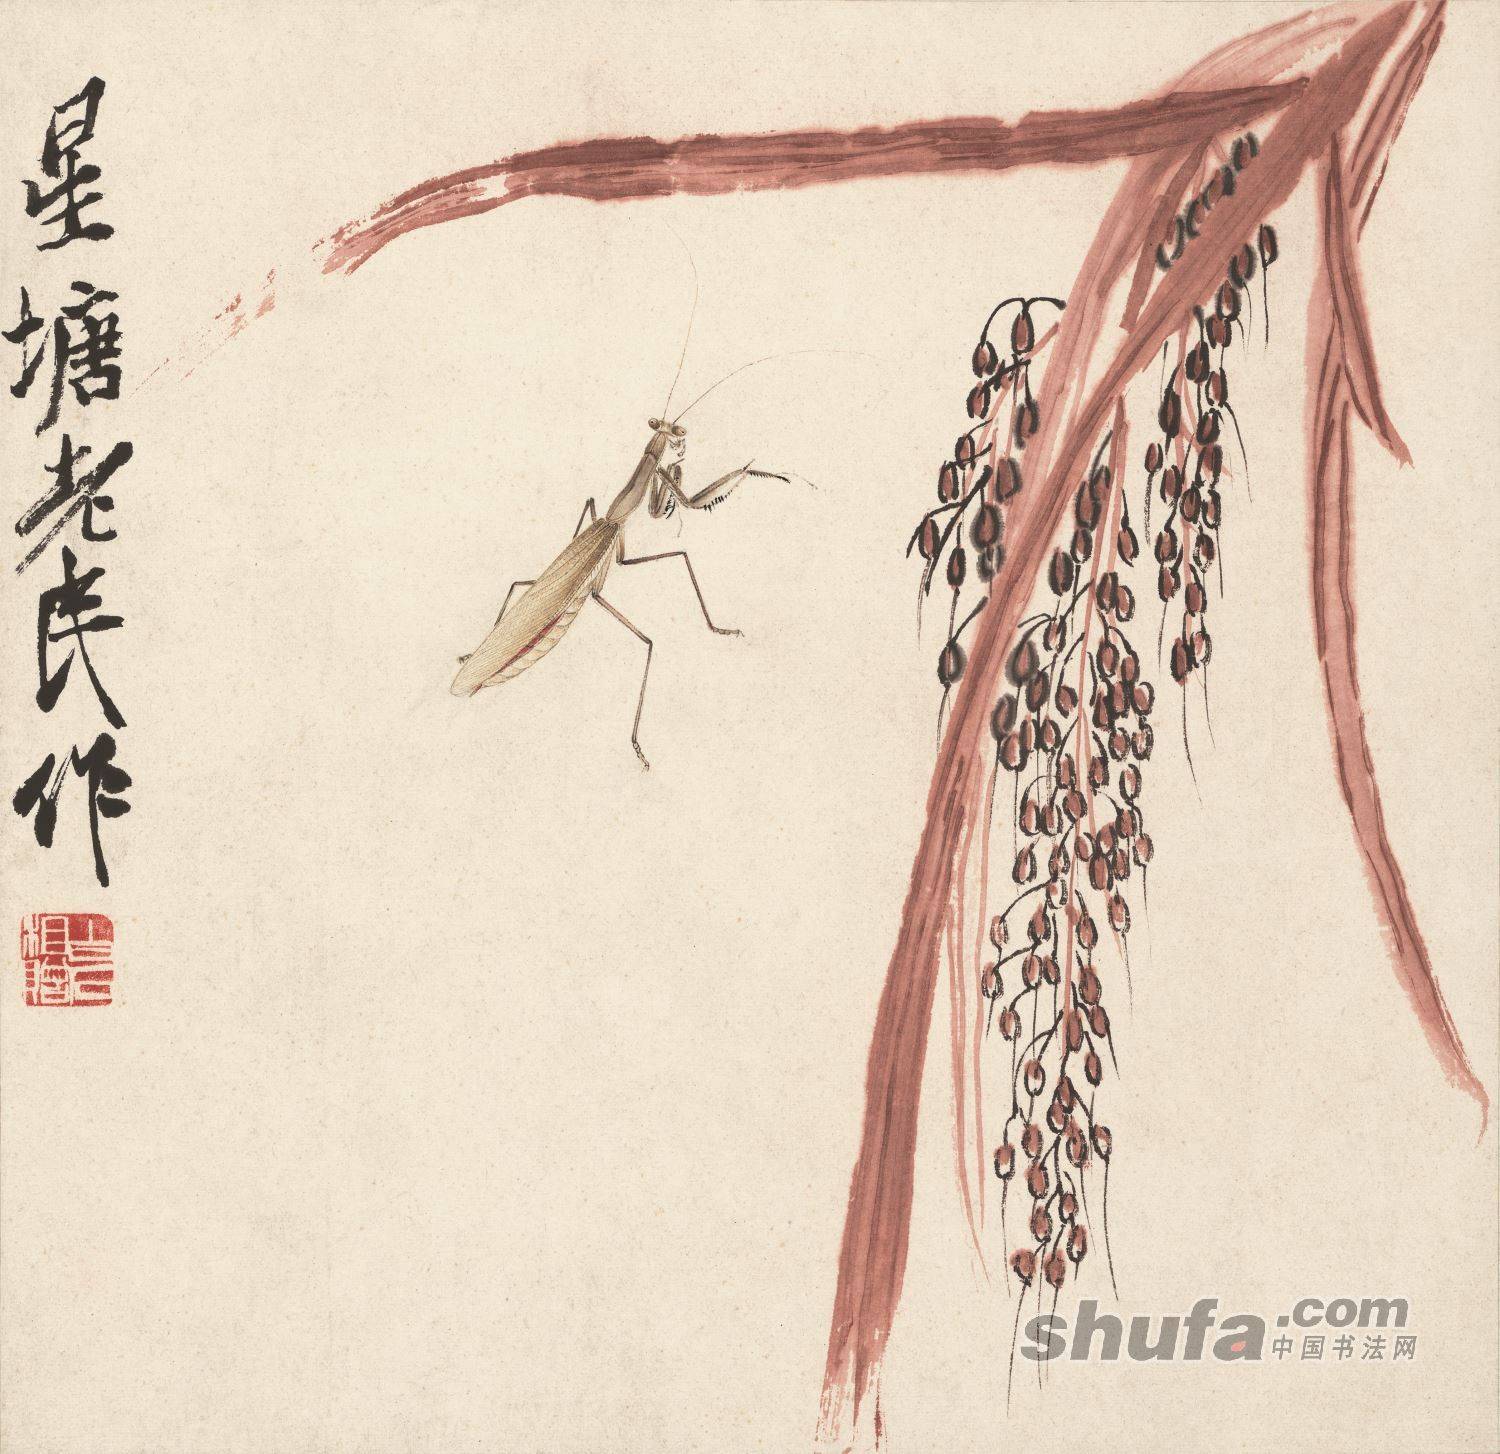 星塘老民作
shufa.com
中国书法网